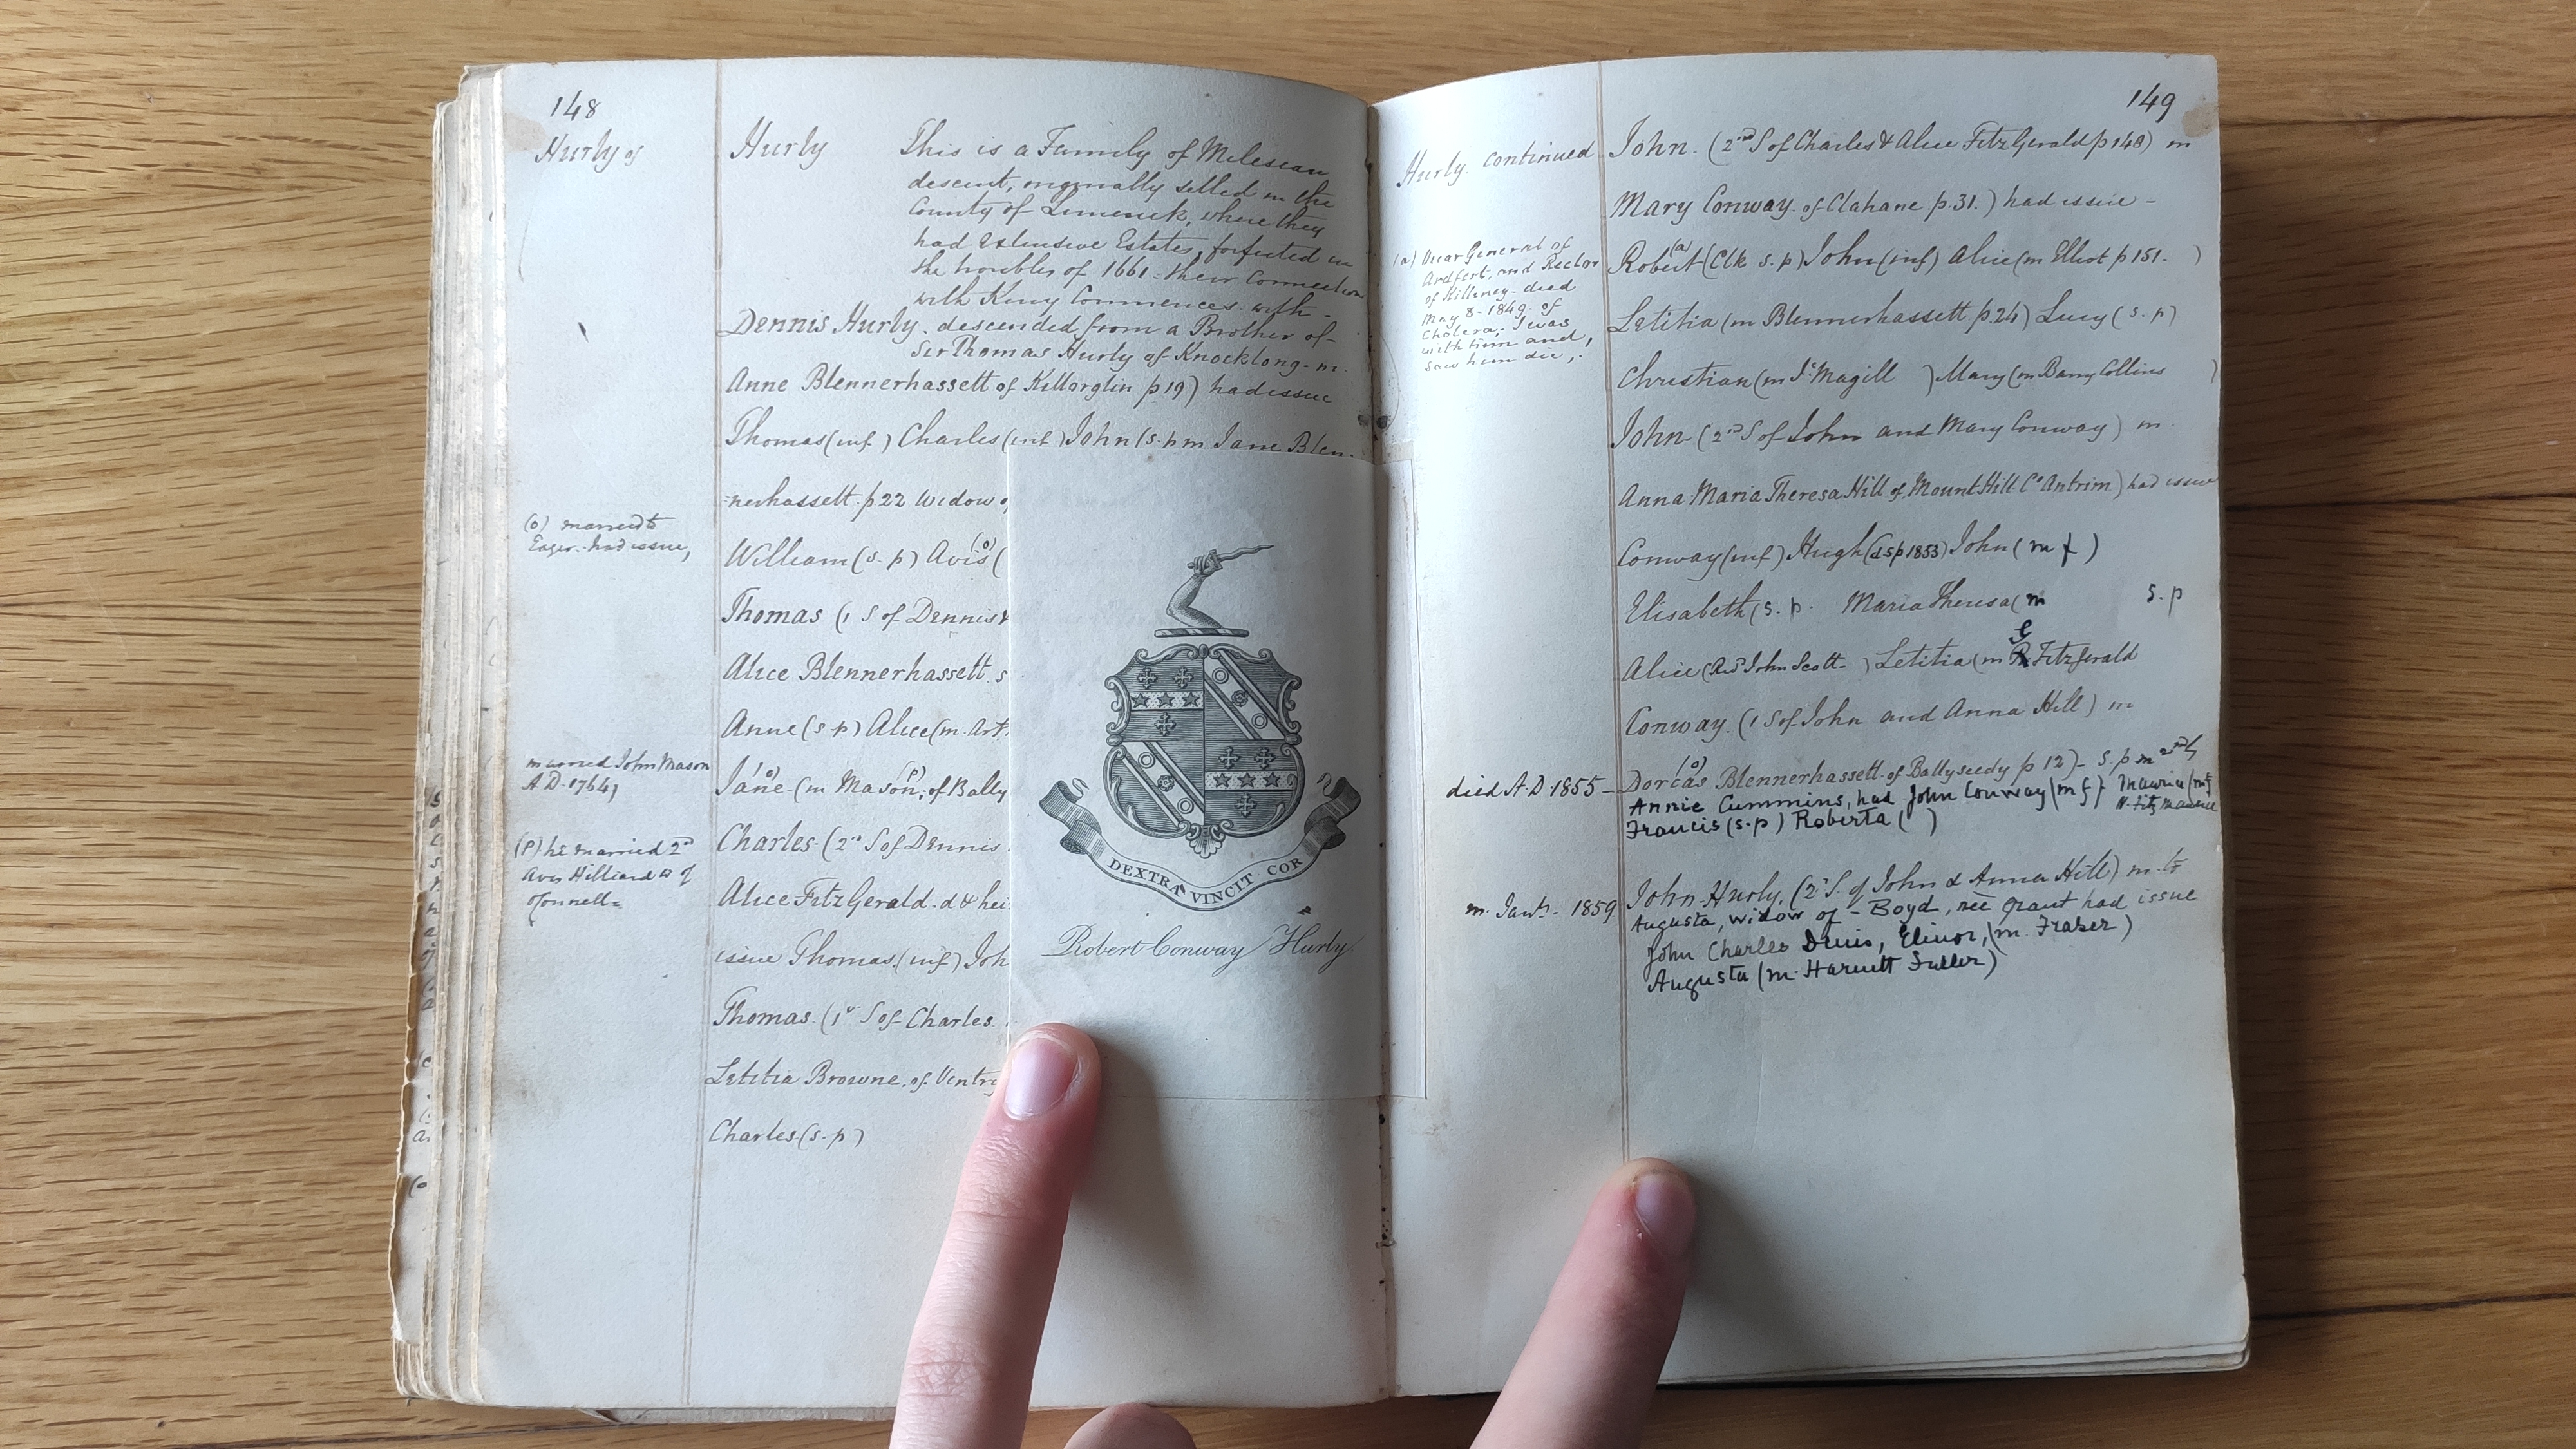 148
Hurly of
Hurly This is a Family of Milesian
descent, originally settled in the
County of Limerick, where they
had extensive Estates, forfeited in
the troubles of 1661 - their connection
with Kerry Commences with -
Dennis Hurly. descended from a Brother of
Sir Thomas Hurly of Knocklong - m.
Anne Blennerhassett of Killorglin p 19) had issue
Thomas (inf) Charles (inf) John (s.p m Jane Blen-
=nerhassett. p 22 widow
(o) married to
Eager. had issue,
William (s.p) Avis (o) (
Thomas (1 S of Dennis &
Alice Blennerhassett. s
Anne (s p) Alice (m. Art
married John Mason
A D. 1764,
Jane (o) (m Mason (p), of Bally
(P) he married 2nd
Avis Hilliard w of
O'Connell=
Charles (2nd S of Dennis
Alice FitzGerald. d & hei
issue Thomas. (inf) Joh
Thomas. (1st S of Charles
Letitia Browne. of Ventry
Charles (s.p)
DEXTRA VINCIT COR
Robert Conway Hurly.
149
Hurly. continued
John. (2nd S of Charles & Alice FitzGerald p 148) m
Mary Conway. of Clahane p. 31.) had issue -
(a) Vicar General of
Ardfert, and Rector
of Killiney - died
May 8 - 1849. of
Cholera, I was
with him and,
saw him die,.
Robert (a) (Clk s.p) John (inf) Alice (m Elliot p 151. )
Letitia (m Blennerhassett p 24) Lucy (s.p)
Christian (m Jas Magill ) Mary (m Barry Collins )
John (2nd S of John and Mary Conway) m.
Anna Maria Theresa Hill of Mount Hill Co Antrim) had issue
Conway (inf) Hugh (dsp 1853) John (m f)
Elisabeth (s.p. Maria Theresa (m s.p
Alice (Revd John Scott - ) Letitia (m G FitzGerald
Conway. (1 S of John and Anna Hill) m
died A.D. 1855 - Dorcas (o) Blennerhassett. of Ballyseedy p 12) - s.p m 2ndly
Annie Cummins, had John Conway (m f) Maurice (m
Francis (s.p) Roberta ( ) N. Fitz Maurice
m. Jany - 1859 John Hurly, (2d S. of John & Anna Hill) m. to
Augusta, widow of - Boyd, née Grant had issue
John Charles Denis, Elinor, (m. Fraser)
Augusta (m. Harnett Fuller)